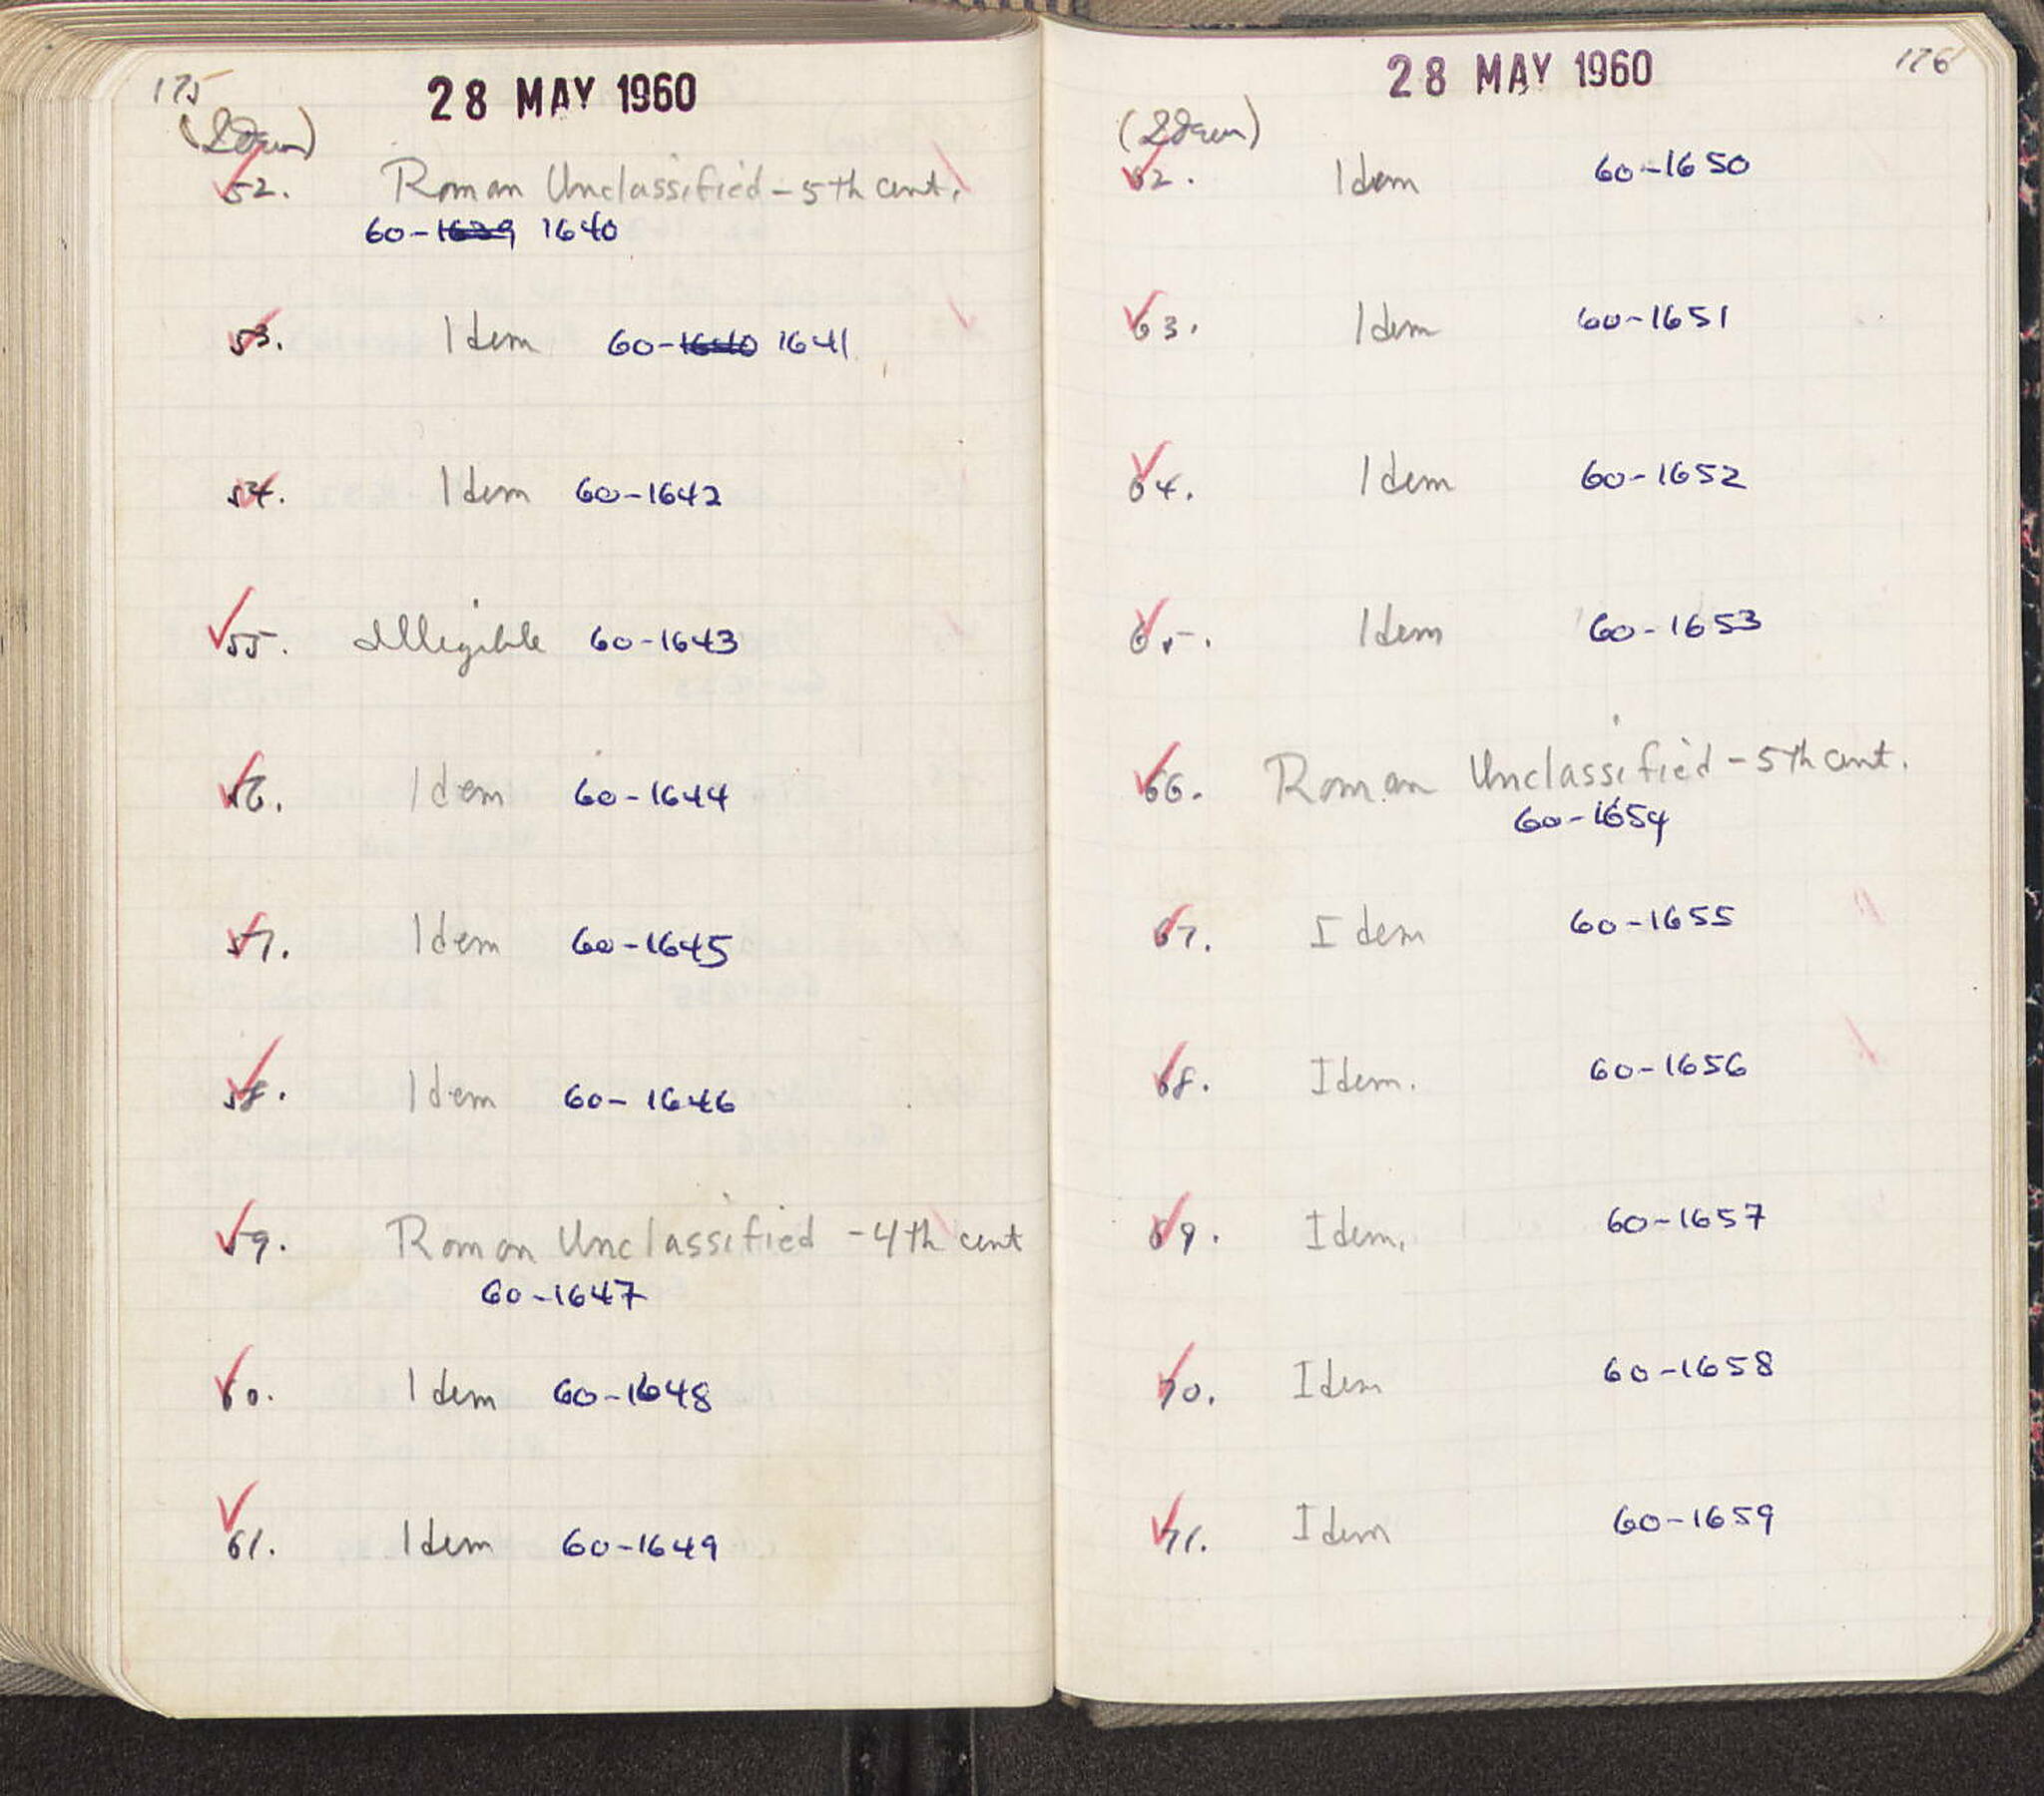 175
28 MAY 1960
(Idem)
52. Roman Unclassified - 5th cent.
60-1639 1640
53. Idem 60-1640 1641
54. Idem 60-1642
55. Illegible 60-1643
56. Idem 60-1644
57. Idem 60-1645
58. Idem 60-1646
59. Roman Unclassified - 4th cent
60-1647
60. Idem 60-1648
61. Idem 60-1649
176
28 MAY 1960
(Idem)
62. Idem 60-1650
63. Idem 60-1651
64. Idem 60-1652
65. Idem 60-1653
66. Roman Unclassified - 5th cent.
60-1654
67. Idem 60-1655
68. Idem. 60-1656
69. Idem. 60-1657
70. Idem 60-1658
71. Idem 60-1659